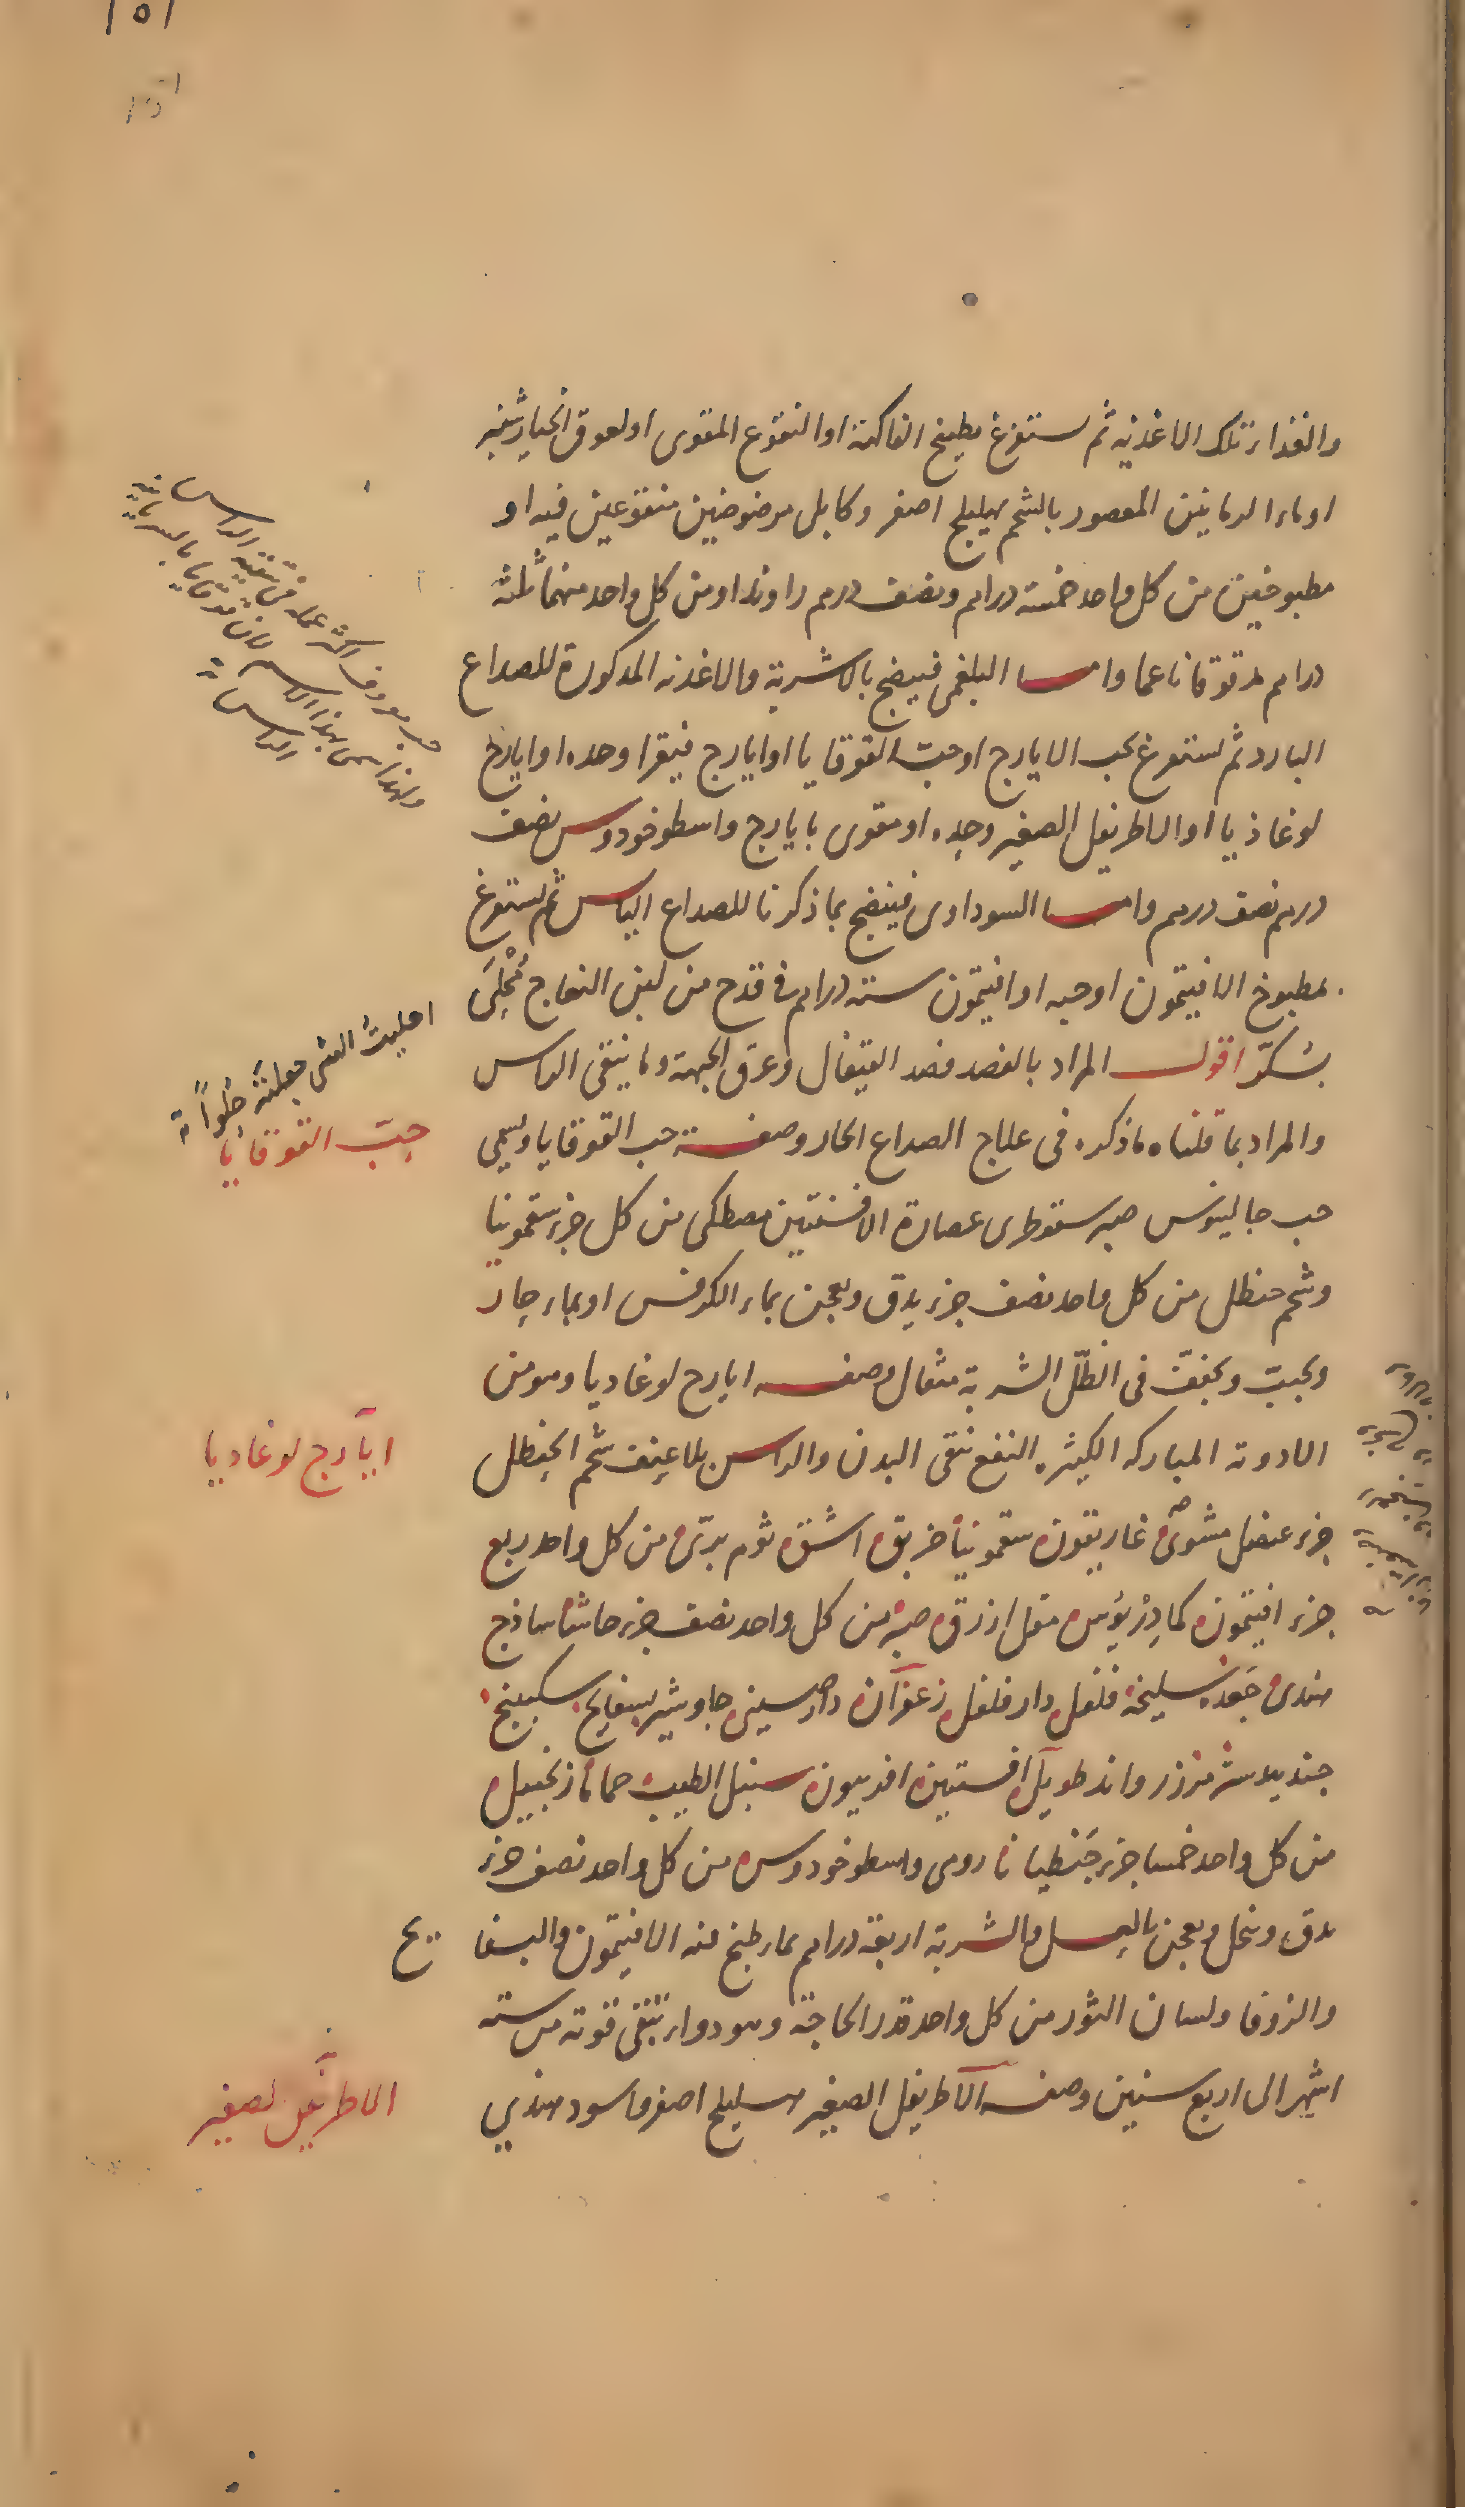 ١٥١
١٥١
والغذاء تلك الاغذية ثم يستفرغ بطبيخ الفاكهة او النقوع المقوى او لعوق الخيارشنبر
او ماء الرمانين المعصور بالشحم بهليلج اصفر وكابلى مرضوضين منقوعين فيه او
مطبوخين من كل واحد خمسة دراهم ونصف درهم راوند او من كل واحد منهما ثلثة
دراهم مدقوقا ناعما واما البلغمى فينضج بالاشربة والاغذية المذكورة للصداع
البارد ثم يستفرغ بحب الايارج او حب القوقايا او ايارج فيقرا وحده او ايارج
لوغاذيا او الاطريفل الصغير وحده او مقوى بايارج واسطوخودوس نصف
درهم نصف درهم واما السوداوى فينضج بما ذكرنا للصداع اليابس ثم يستفرغ
بمطبوخ الافيتمون او حبه او افيتمون ستة دراهم فى قدح من لبن النعاج مُحْلِىَ
بسُكّر اقول المراد بالفصد فصد القيفال وعرق الجبهة وما ينقى الراس
والمراد بما قلناه ما ذكره فى علاج الصداع الحار وصفة حب القوقايا ويسمى
حب جالينوس صبر سقوطرى عصارة الافسنتين مصطكى من كل جزء سقمونيا
وشحم حنظل من كل واحد نصف جزء يدق ويعجن بماء الكرفس او بماء حار
ويحبب ويجفف فى الظلّ الشربة مثقال وصفة ايارج لوغاديا وهو من
الادوية المباركة الكثيرة النفع ينقى البدن والراس بلا عنف شحم الحنظل
جزء عنصل مشوىّ غاريقون سقمونيا خربق اشق ثوم برّى من كل واحد ربع
جزء افيتمون كمادِرْيُوس مقل ازرق صبر من كل واحد نصف جزء حاشا ساذج
هندى جَعْدة سليخة فلفل دار فلفل زعفران دارصينى جاوشير بسفايج سكبينج
جندبيدستر مر زراوند طويل افسنتين افربيون سنبل الطيب حماما زنجبيل
من كل واحد خمسا جزء جَنطيانا رومى واسطوخودوس من كل واحد نصف جزء
يدق وينخل ويعجن بالعسل والشربة اربعة دراهم بماء طبخ فيه الافيتمون والبسفايج
والزوفا ولسان الثور من كل واحد قدر الحاجة وهو دواء تبقى قوته من ستة
اشهر الى اربع سنين وصفة الاطريفل الصغير هليلج اصفر واسود هندي
حب معروف اكثر عمله فى تنقية الراس
ولهذا سمى بهذا الاسم لان قوقايا بالسريانية
الراس
احليتُ الشى جعلتُه حُلواً
حبّ القوقايا
ايارج لوغاديا
الاطريفل الصغير